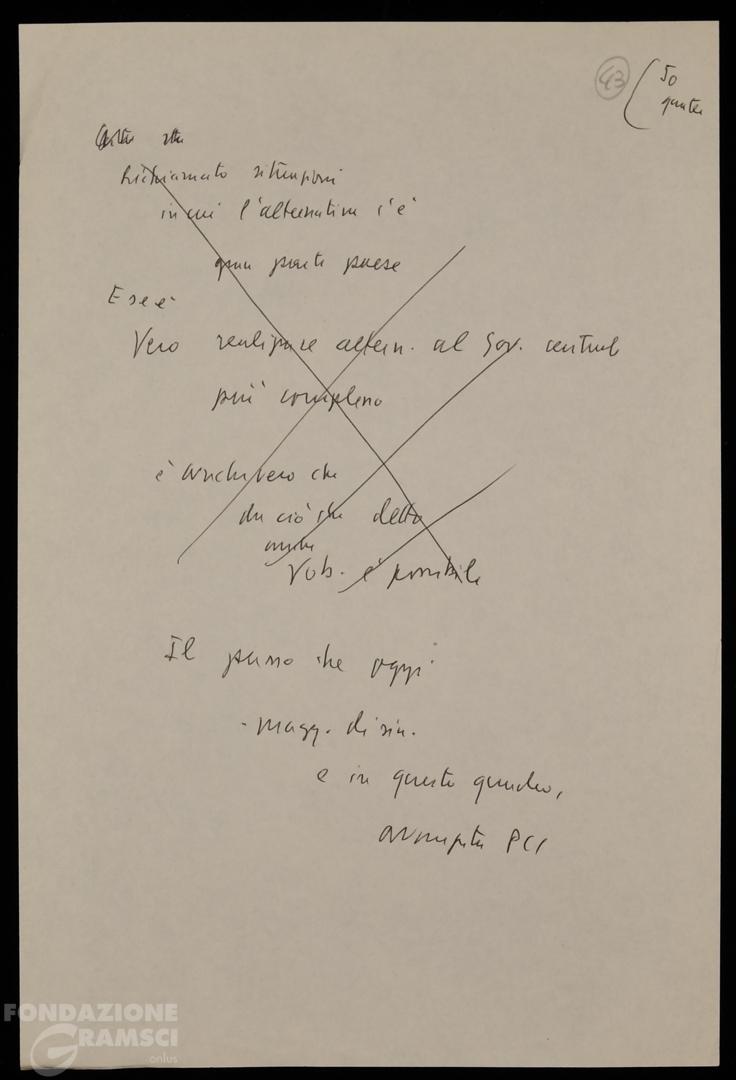 43
50
Richiamato situazioni
in cui l'alternativa c'è
gran parte paese
E se è
Vero realizzare altern. al Gov. centrale
più complesso
è anche vero che
da ciò che detto
anche
Vob. è possibile
Il passo che oggi
- magg. di sin.
e in questo quadro,
avanzata PCI
FONDAZIONE
GRAMSCI
onlus